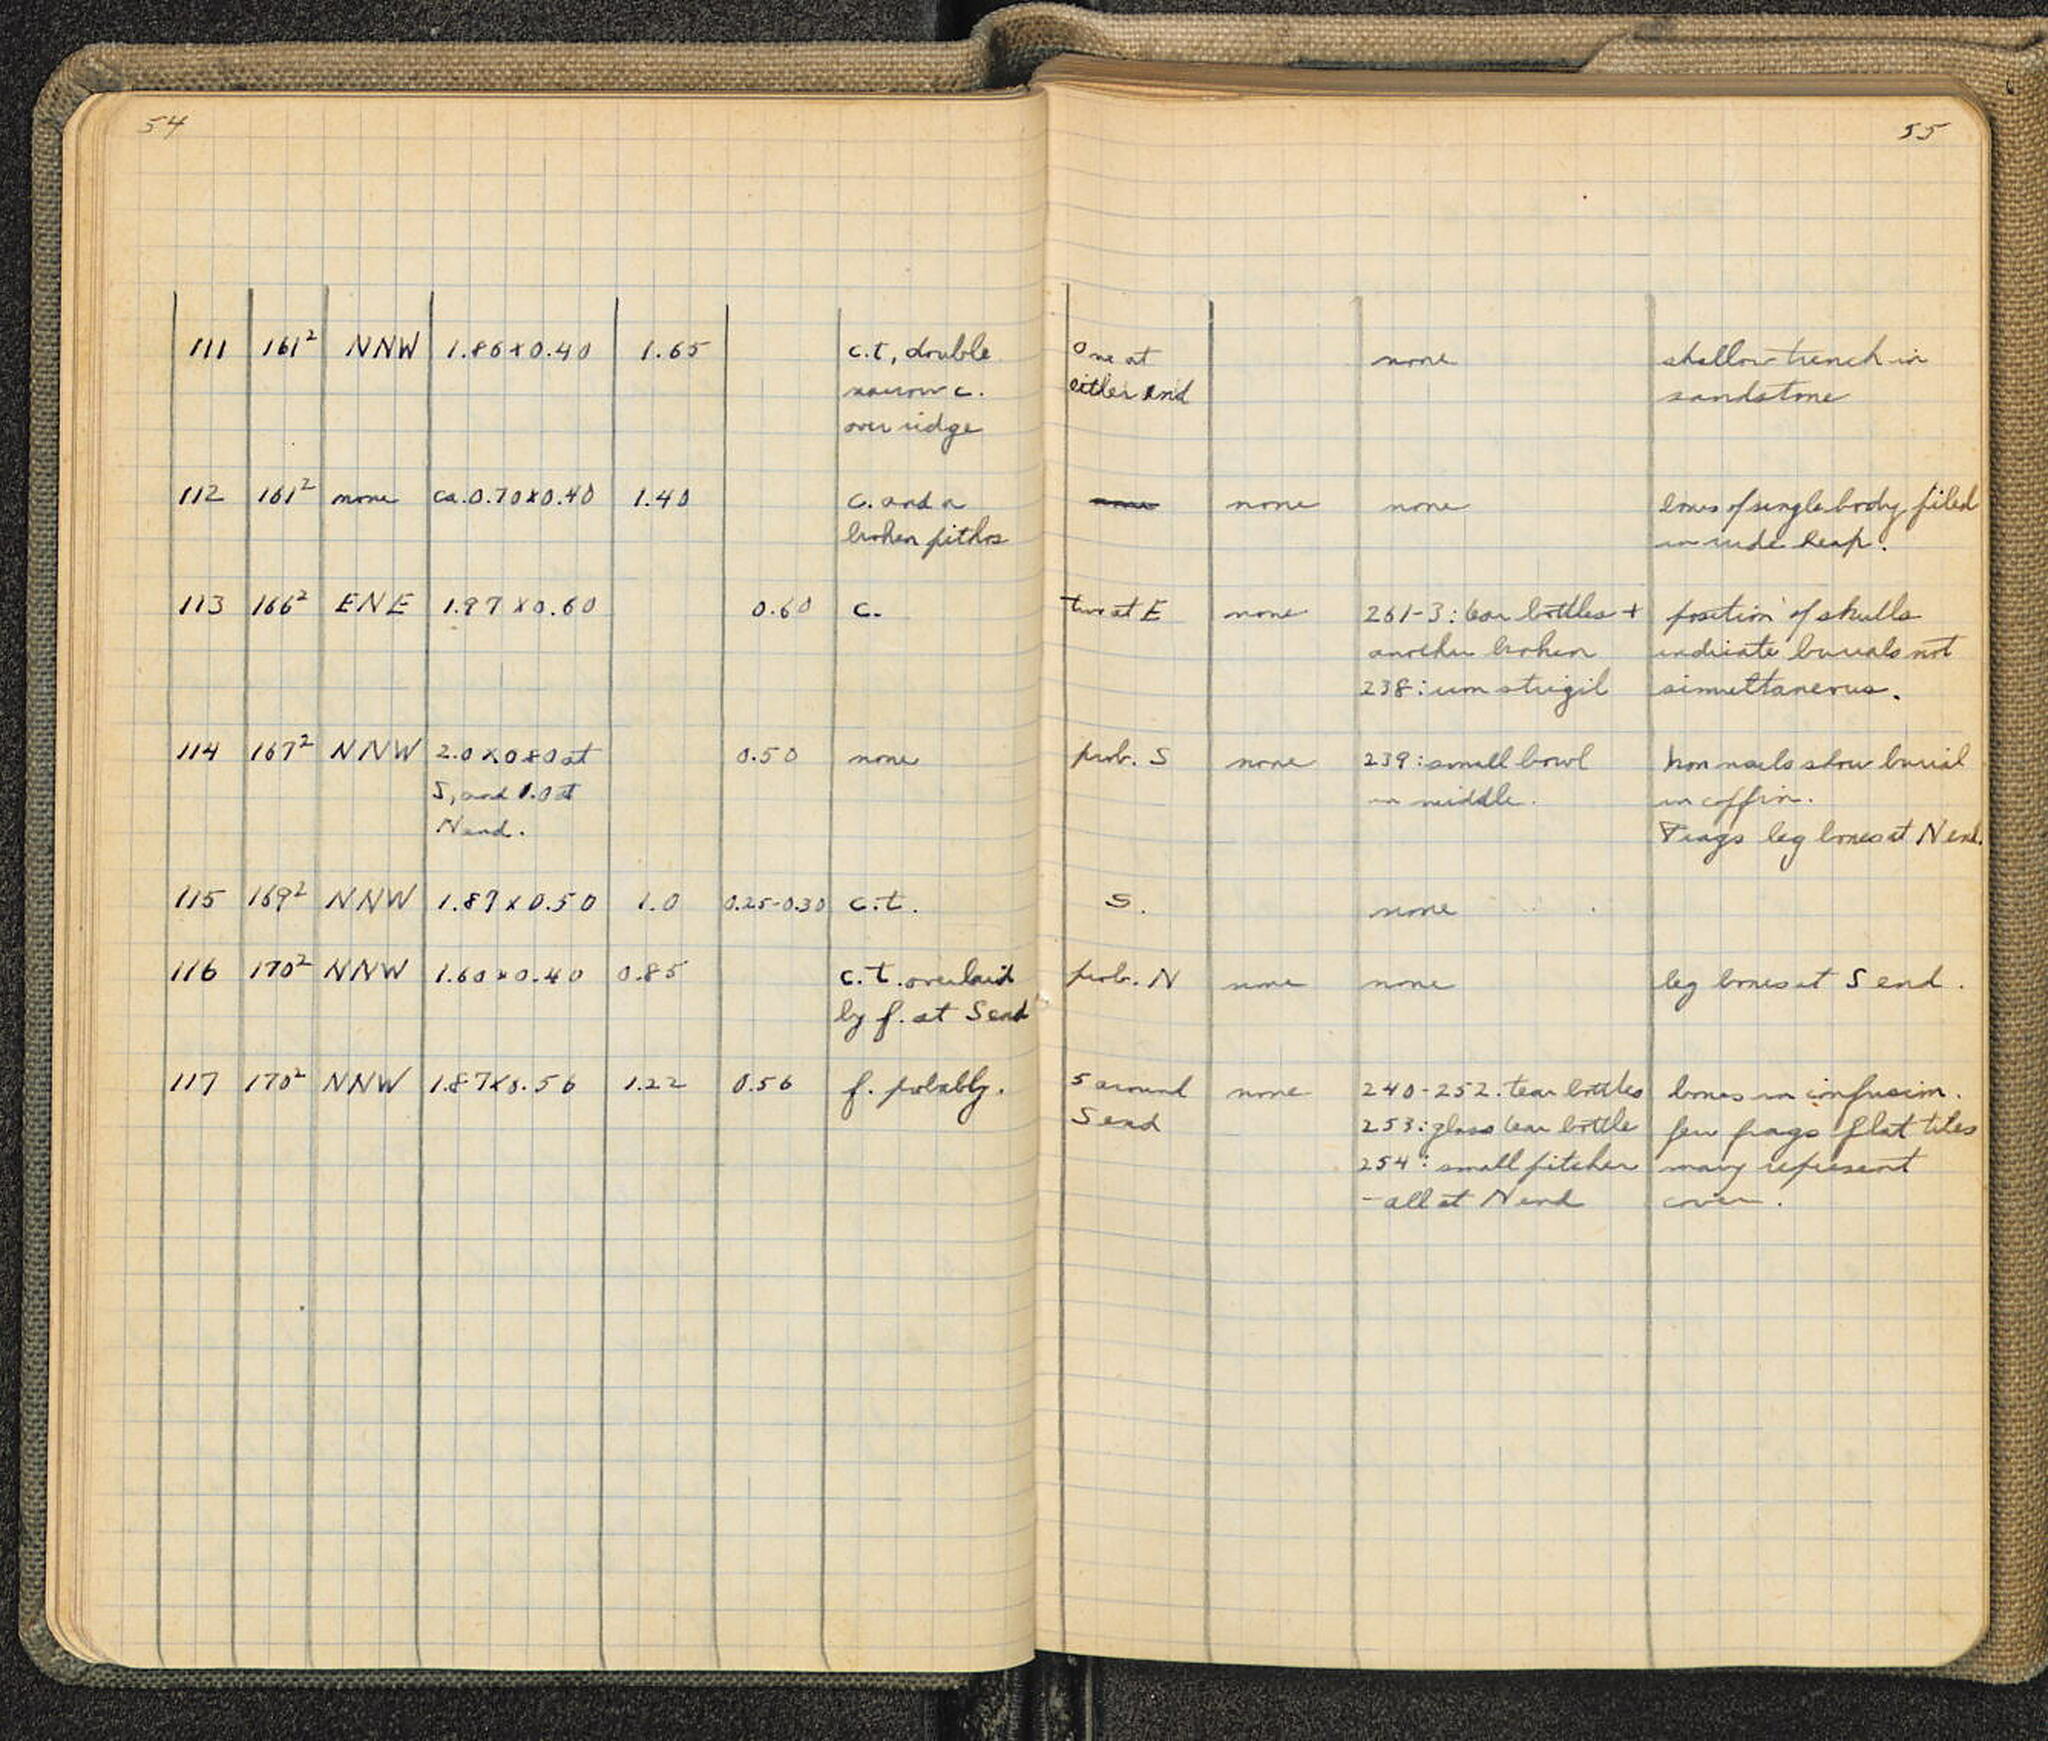 54
55
111 161² NNW 1.86 x 0.40 1.65 c.t, double One at none shallow trench in
narrow c. either end sandstone
over ridge
112 161² none ca. 0.70 x 0.40 1.40 c. and a none none none bones of single body piled
broken pithos in rude heap.
113 166² ENE 1.97 x 0.60 0.60 c. two at E none 261-3: tear bottles + position of skulls
another broken indicate burials not
238: iron strigil simultaneous.
114 167² NNW 2.0 x 0.80 at 0.50 none prob. S none 239: small bowl Iron nails show burial
S, and 1.0 at in middle. in coffin.
N end. Frags leg bones at N end.
115 169² NNW 1.87 x 0.50 1.0 0.25-0.30 c.t. S. none
116 170² NNW 1.60 x 0.40 0.85 c.t. overlaid prob. N none none leg bones at S end.
by f. at S end
117 170² NNW 1.87 x 0.56 1.22 0.56 f. probably. 5 around none 240-252. tear bottles bones in confusion.
S end 253: glass tear bottle few frags flat tiles
254: small pitcher may represent
- all at N end cover.